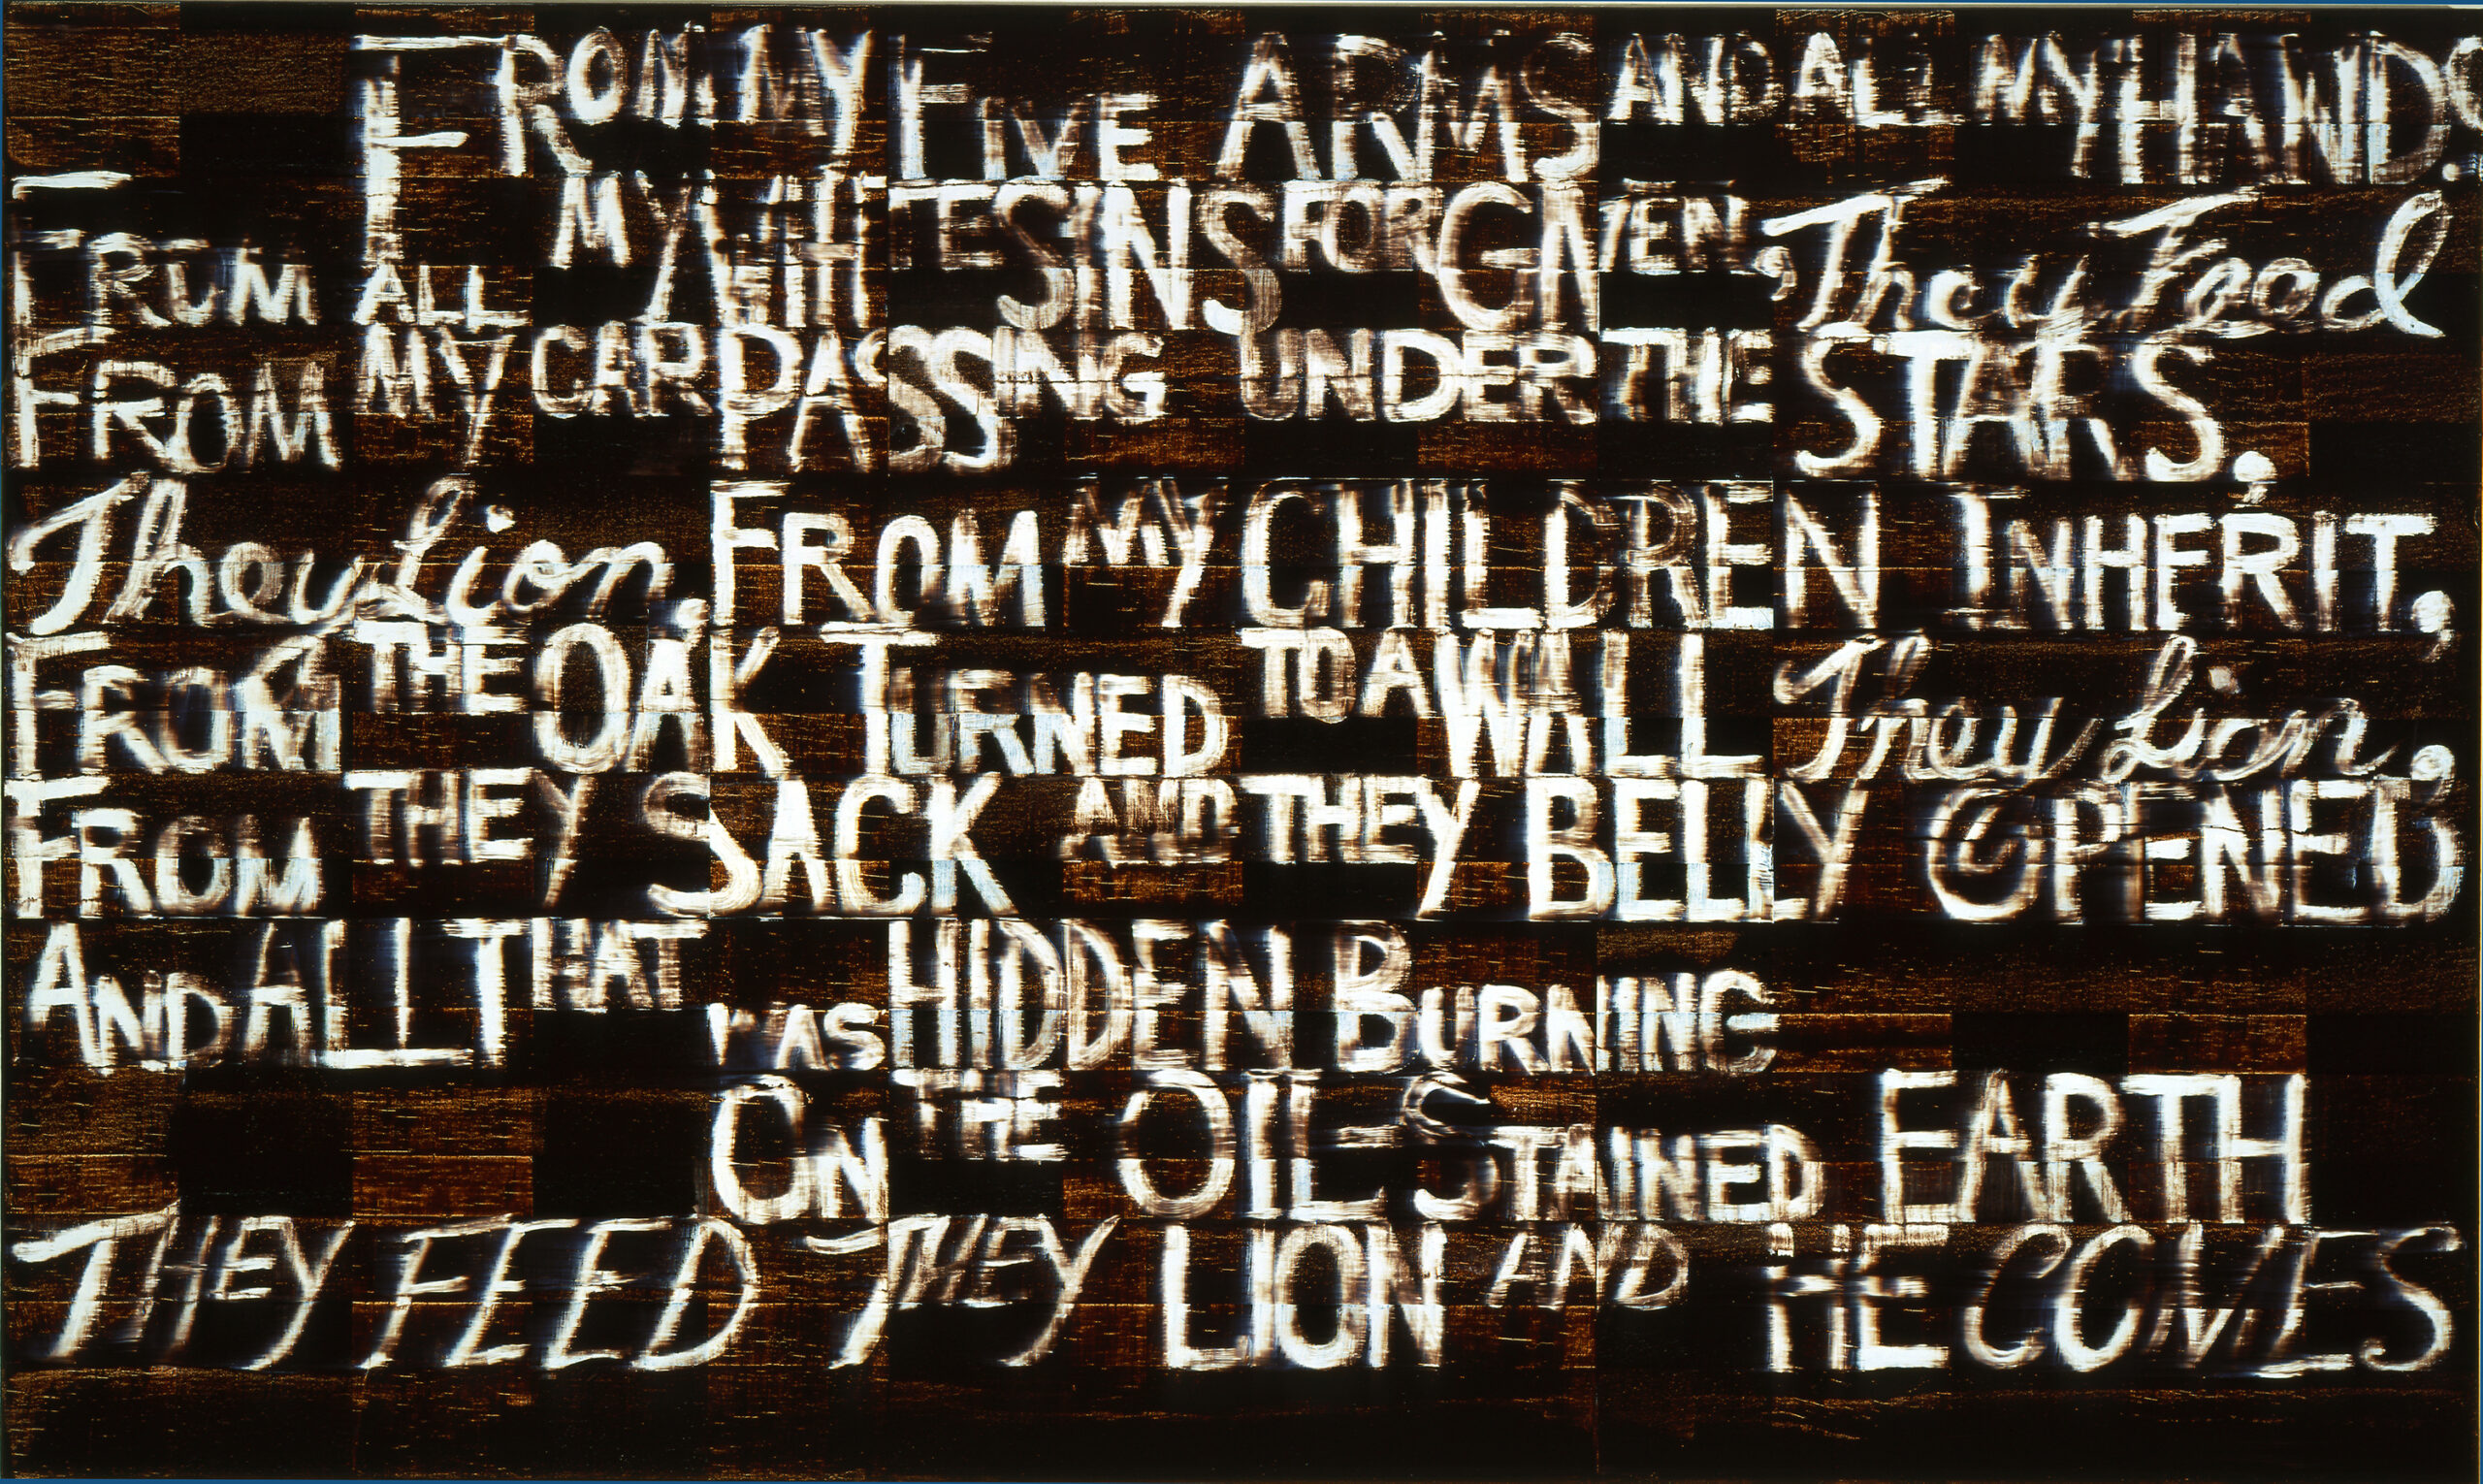 FROM MY FIVE ARMS AND ALL MY HANDS,
FROM ALL MY WHITE SINS FORGIVEN, They Feed
FROM MY CAR PASSING UNDER THE STARS,
They Lion, FROM MY CHILDREN INHERIT,
FROM THE OAK TURNED TO A WALL They Lion,
FROM THEY SACK AND THEY BELLY OPENED
AND ALL THAT WAS HIDDEN BURNING
ON THE OIL-STAINED EARTH
THEY FEED THEY LION AND HE COMES